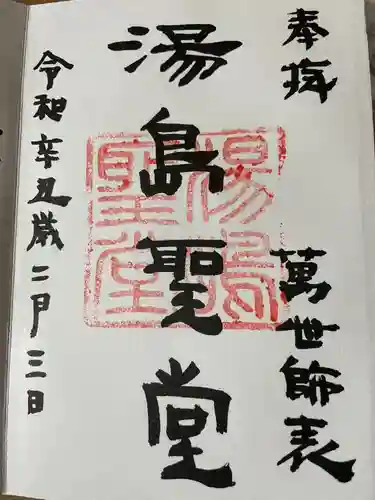 奉拜
萬世師表
湯島聖堂
湯島聖堂
令和辛丑歳二月三日